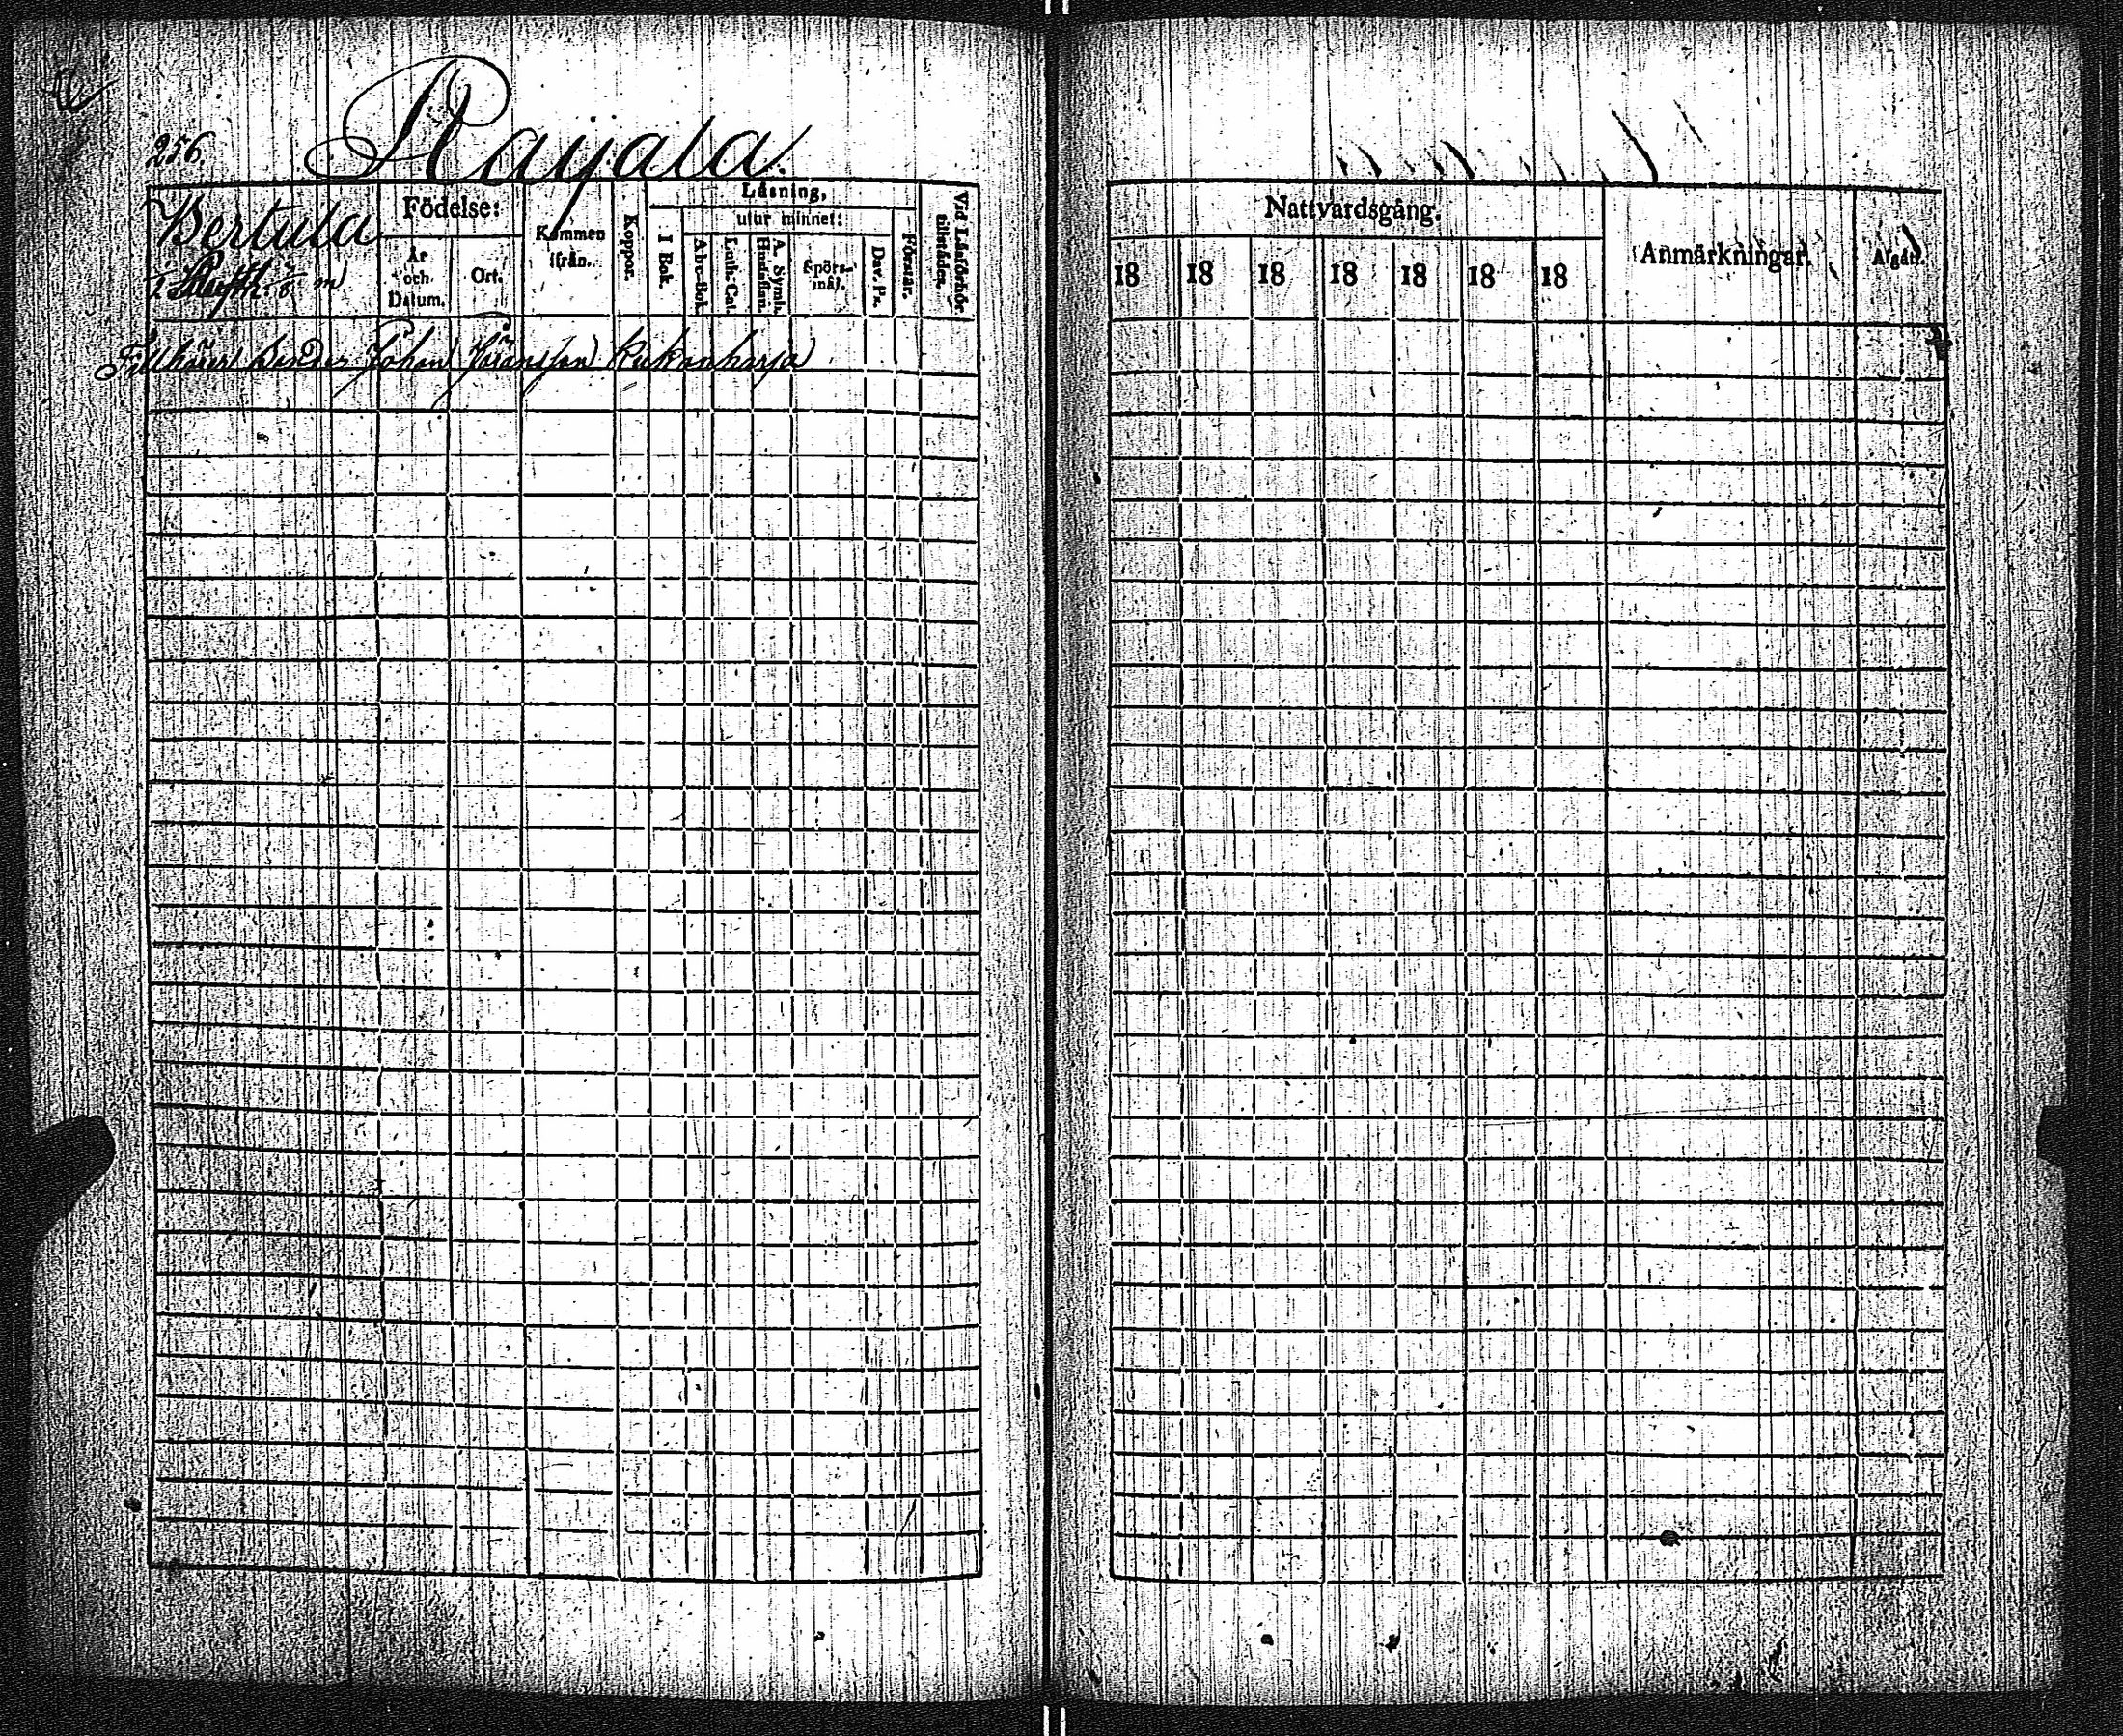 256.
Rayala.
Bertula
Födelse:
År och Datum.
Ort.
Kommen ifrån.
Koppor.
Läsning,
I Bok.
utur minnet:
A-b-c-Bok.
Luth. Cat.
A. Symb. Hustaflan.
Spörs-mål.
Dav. Ps.
Förstår.
Vid Läsförhör tillstädes.
Tillhörer bonden Johan Göransson Kukonharja
Nattvardsgång.
18 18 18 18 18 18 18
Anmärkningar.
Afgått.